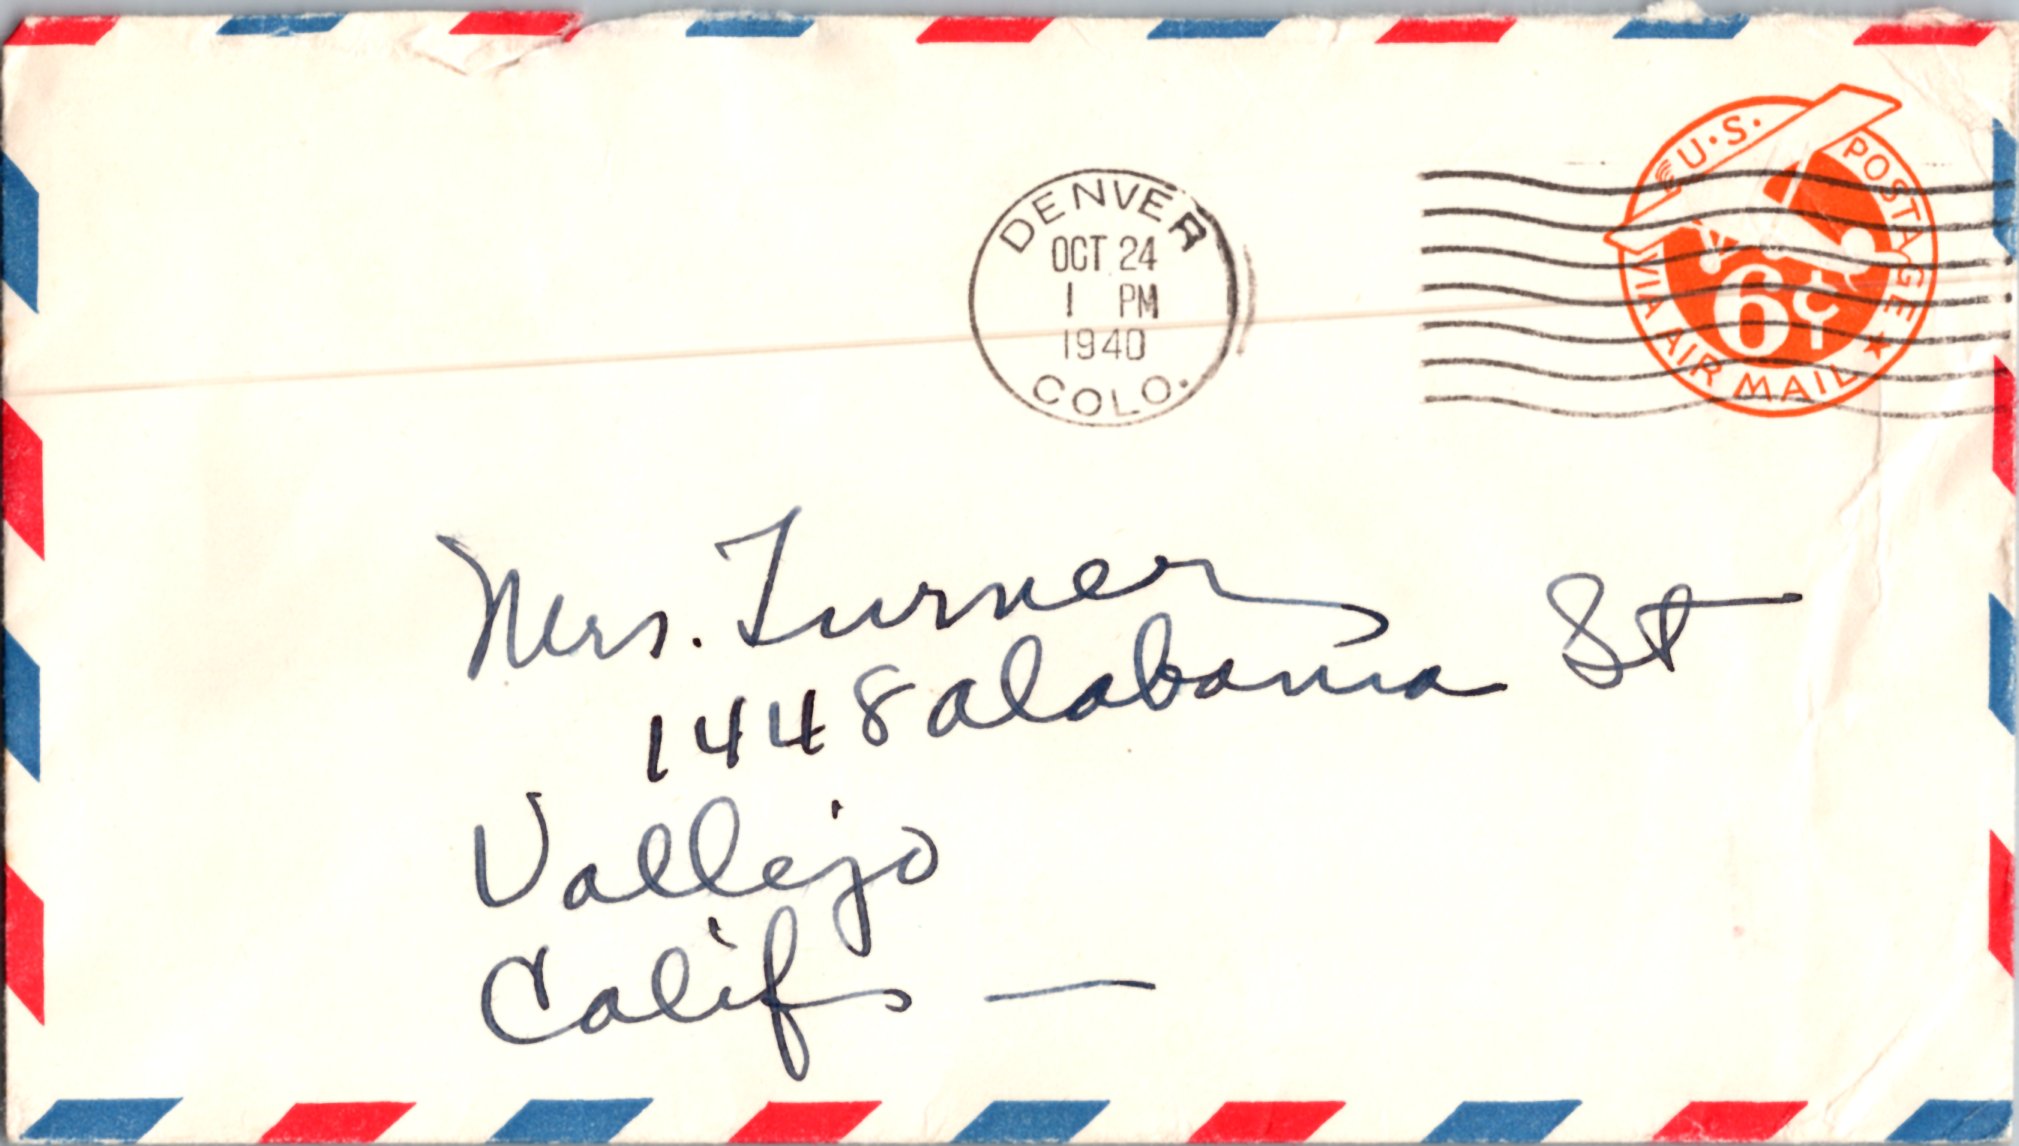 U.S. POSTAGE
VIA AIR MAIL
6¢
DENVER
OCT 24
1 PM
1940
COLO.
Mrs. Turner
1448 Alabama St
Vallejo
Calif —